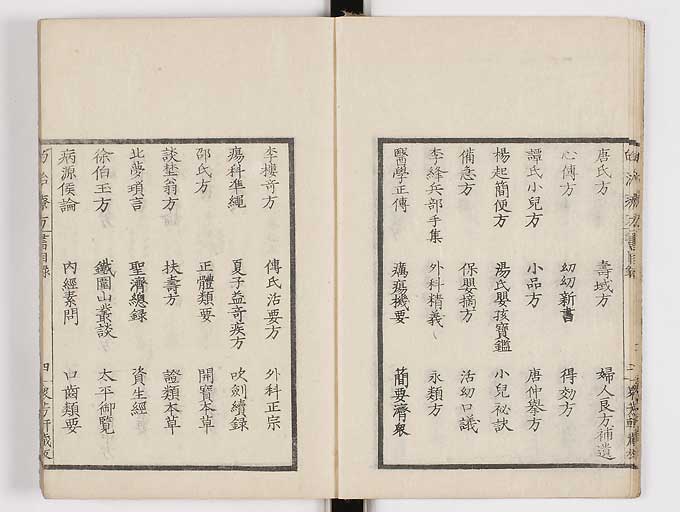 唐氏方 壽域方 婦人良方補遺
心傳方 幼幼新書 得効方
譚氏小兒方 小品方 唐仲擧方
楊起簡便方 湯氏嬰孩寶鑑 小兒祕訣
備急方 保嬰摘方 活幼口議
李絳兵部手集 外科精義 永類方
醫學正傳 癘瘍機要 簡要濟衆
李樓竒方 傅氏活要方 外科正宗
瘍科準繩 夏子益竒疾方 吹劍續録
邵氏方 正體類要 開寶本草
談埜翁方 扶壽方 證類本草
北夢瑣言 聖濟總録 資生經
徐伯玉方 鐵圍山叢談 太平御覽
病源候論 內經素問 口齒類要